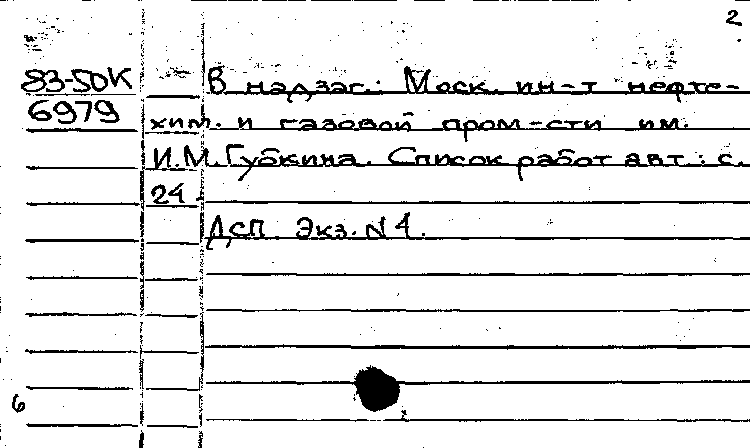 2
83-50К В надзаг.: Моск. ин-т нефте-
6979 хим. и газовой пром-сти им.
И.М. Губкина. Список работ авт.: с.
24.
ДСП. Экз. N 4.
6